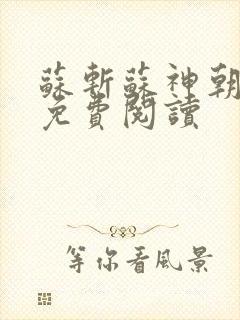 蘇斬蘇神朝
免費閱讀
等你看風景